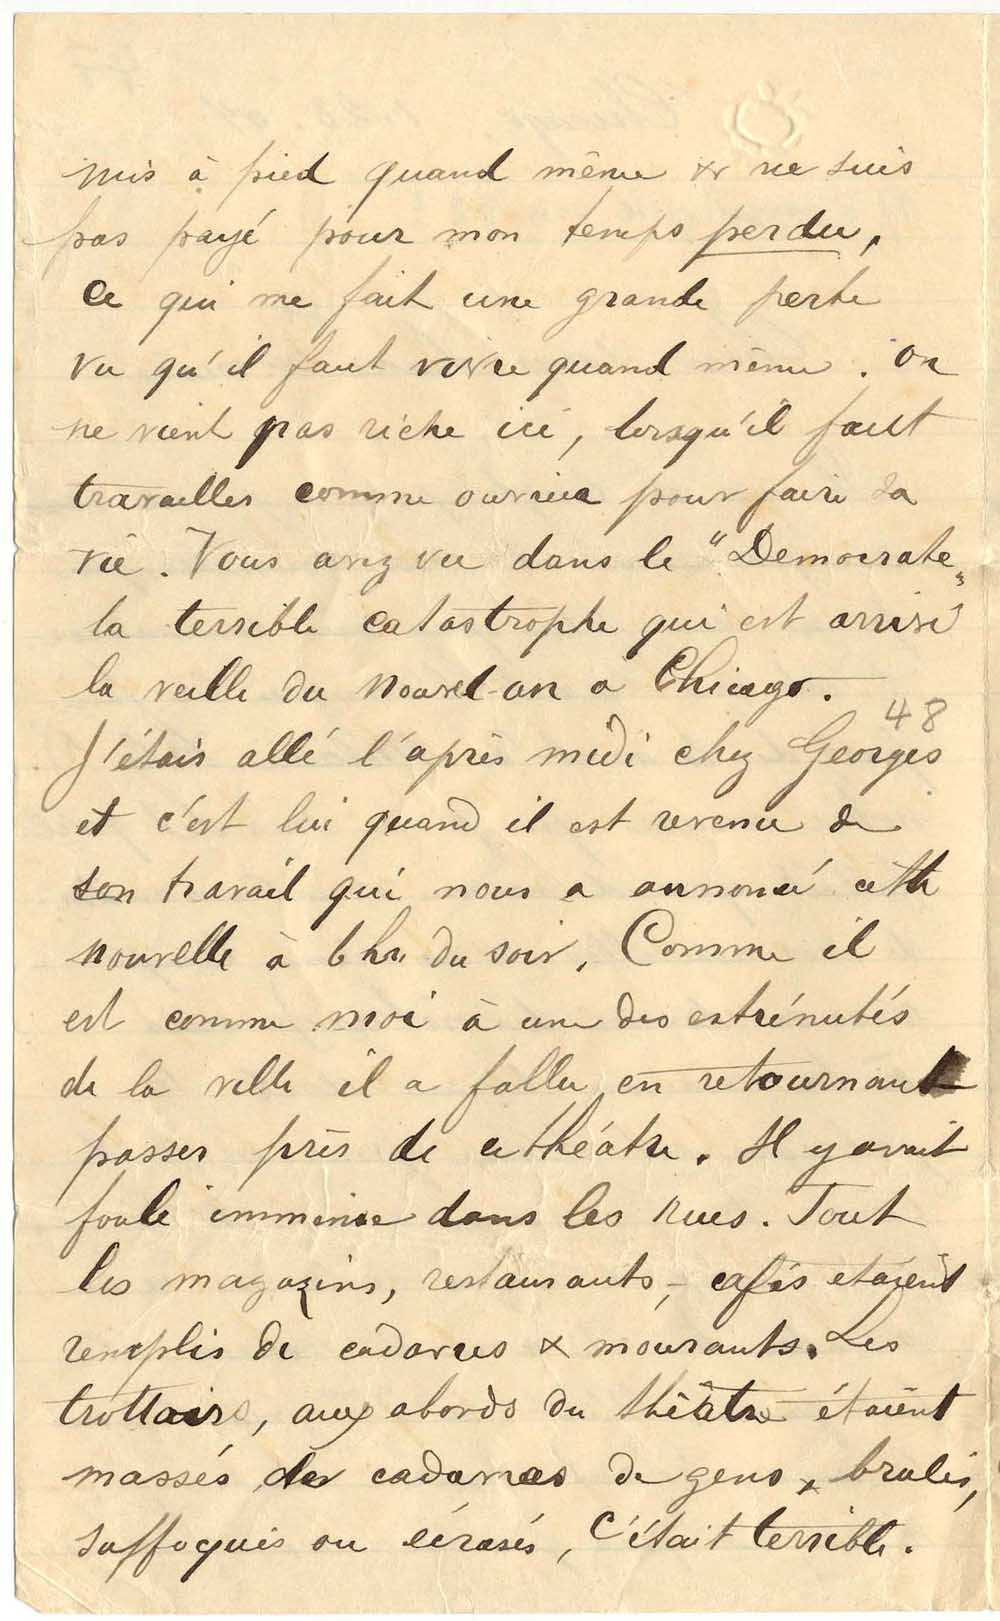 mis à pied quand même & ne suis
pas payé pour mon temps perdu,
ce qui me fait une grande perte
vu qu'il faut vivre quand même. On
ne vient pas riche ici, lorsqu'il faut
travailler comme ouvrier pour faire sa
vie. Vous avez vu dans le "Democrate"
la terrible catastrophe qui est arrivé
la veille du Nouvel-an a Chicago.
48
J'étais allé l'après midi chez Georges
et c'est lui quand il est revenu de
son travail qui nous a annoncé cette
nouvelle à 6 hrs du soir. Comme il
est comme moi à une des extrémités
de la ville il a fallu en retournant
passer près de ce théatre. Il y avait
foule immense dans les rues. Tout
les magazins, restaurants, cafés etaient
remplis de cadavres & mourants. Les
trottoirs, aux abords du théâtre étaient
massés de cadavres de gens, brulés,
suffoqués ou écrasés, C'était terrible.